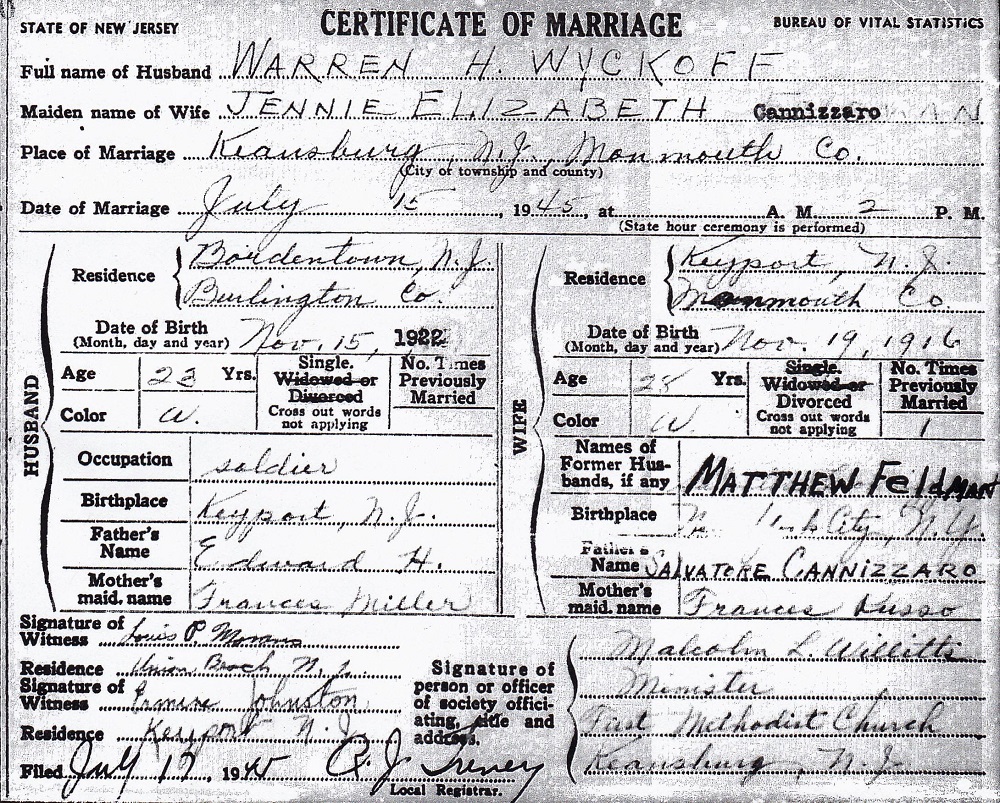 STATE OF NEW JERSEY CERTIFICATE OF MARRIAGE BUREAU OF VITAL STATISTICS
Full name of Husband WARREN H. WYCKOFF
Maiden name of Wife JENNIE ELIZABETH Cannizzaro
Place of Marriage Keansburg, N.J., Monmouth Co.
(City or township and county)
Date of Marriage July 15, 1945, at A. M. 2 P. M.
(State hour ceremony is performed)
HUSBAND
Residence Bordentown, N.J.
Burlington Co.
Date of Birth
(Month, day and year) Nov. 15, 1922
Age 23 Yrs.
Color W.
Single.
Widowed or
Divorced
Cross out words
not applying
No. Times
Previously
Married
Occupation soldier
Birthplace Keyport, N.J.
Father's
Name Edward H.
Mother's
maid. name Frances Miller
WIFE
Residence Keyport, N.J.
Monmouth Co
Date of Birth
(Month, day and year) Nov. 19, 1916
Age 28 Yrs.
Color W.
Single.
Widowed or
Divorced
Cross out words
not applying
No. Times
Previously
Married
1
Names of
Former Hus-
bands, if any MATTHEW FeldMAN
Birthplace York City, N.Y.
Father's
Name SALVATORE CANNIZZARO
Mother's
maid. name Frances Russo
Signature of
Witness Louis P.
Residence Union Beach N.J.
Signature of
Witness Johnston
Residence Keyport N.J.
Filed July 17, 1945 R.J.
Local Registrar.
Signature of
person or officer
of society offici-
ating, title and
address.
Malcolm L. Willitts
Minister
First Methodist Church
Keansburg, N.J.